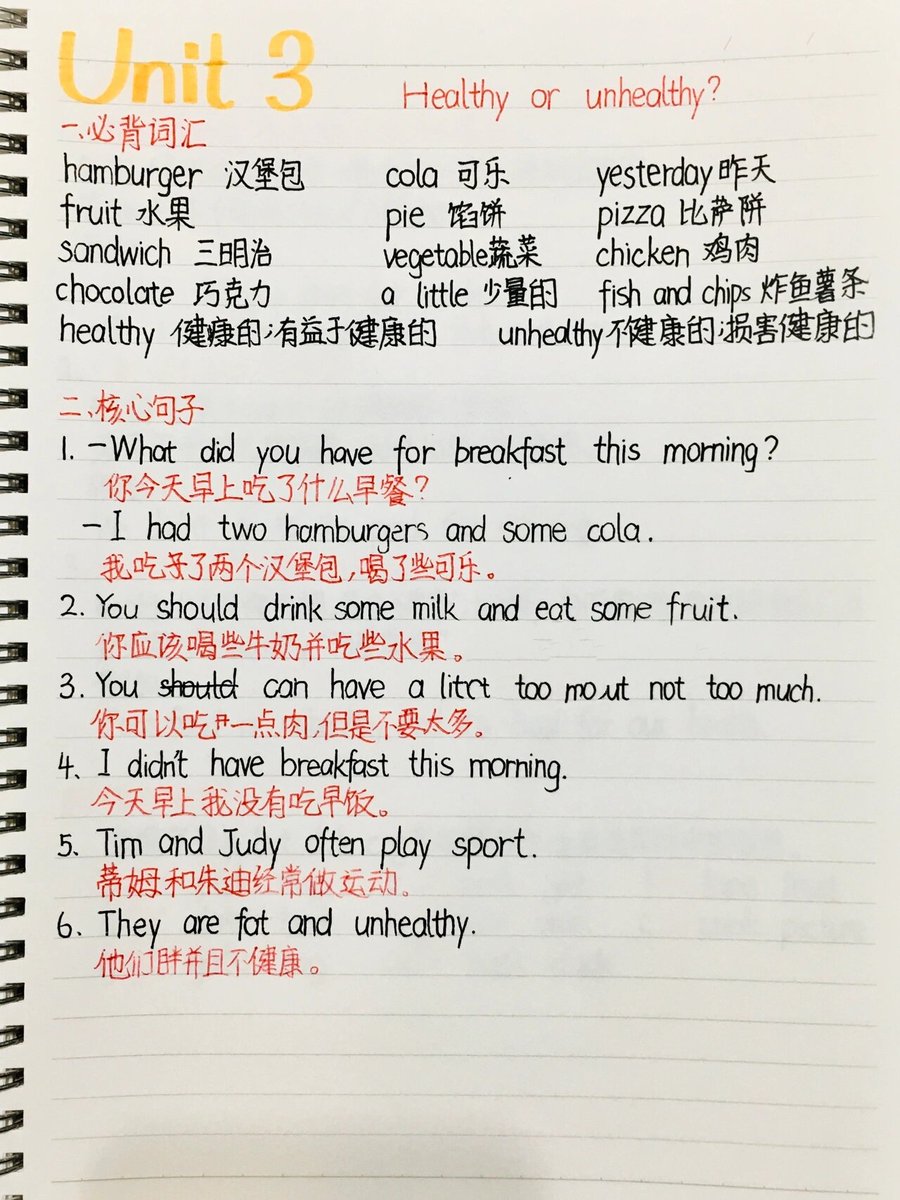 Unit 3 Healthy or unhealthy?
一、必背词汇
hamburger 汉堡包 cola 可乐 yesterday 昨天
fruit 水果 pie 馅饼 pizza 比萨阱
sandwich 三明治 vegetable 蔬菜 chicken 鸡肉
chocolate 巧克力 a little 少量的 fish and chips 炸鱼薯条
healthy 健康的;有益于健康的 unhealthy 不健康的;损害健康的
二、核心句子
1. -What did you have for breakfast this morning?
你今天早上吃了什么早餐?
- I had two hamburgers and some cola.
我吃了两个汉堡包,喝了些可乐。
2. You should drink some milk and eat some fruit.
你应该喝些牛奶并吃些水果。
3. You should can have a too not too much.
你可以吃一点肉,但是不要太多。
4、I didn't have breakfast this morning.
今天早上我没有吃早饭。
5、Tim and Judy often play sport.
蒂姆和朱迪经常做运动。
6、They are fat and unhealthy.
他们胖并且不健康。